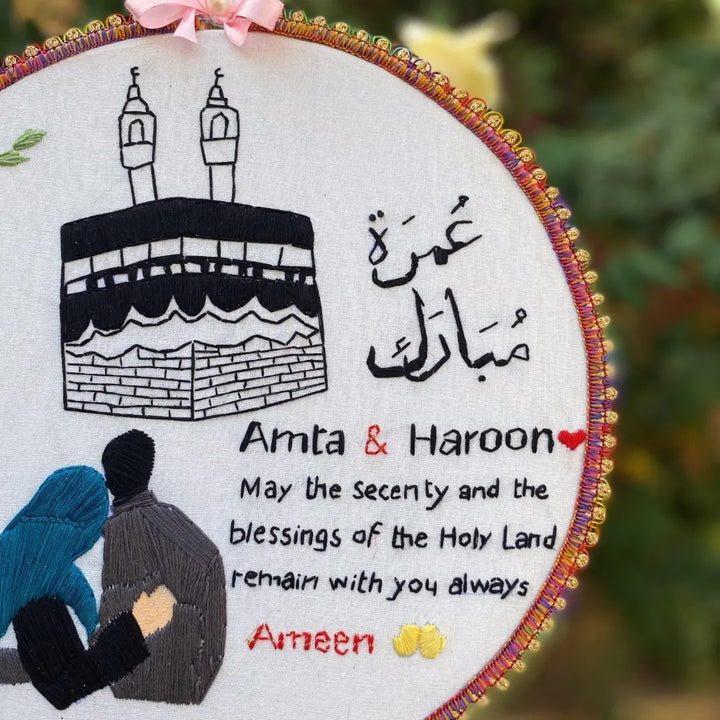 عُمرَة
مُبَارَك
Amta & Haroon
May the secenty and the
blessings of the Holy Land
remain with you always
Ameen